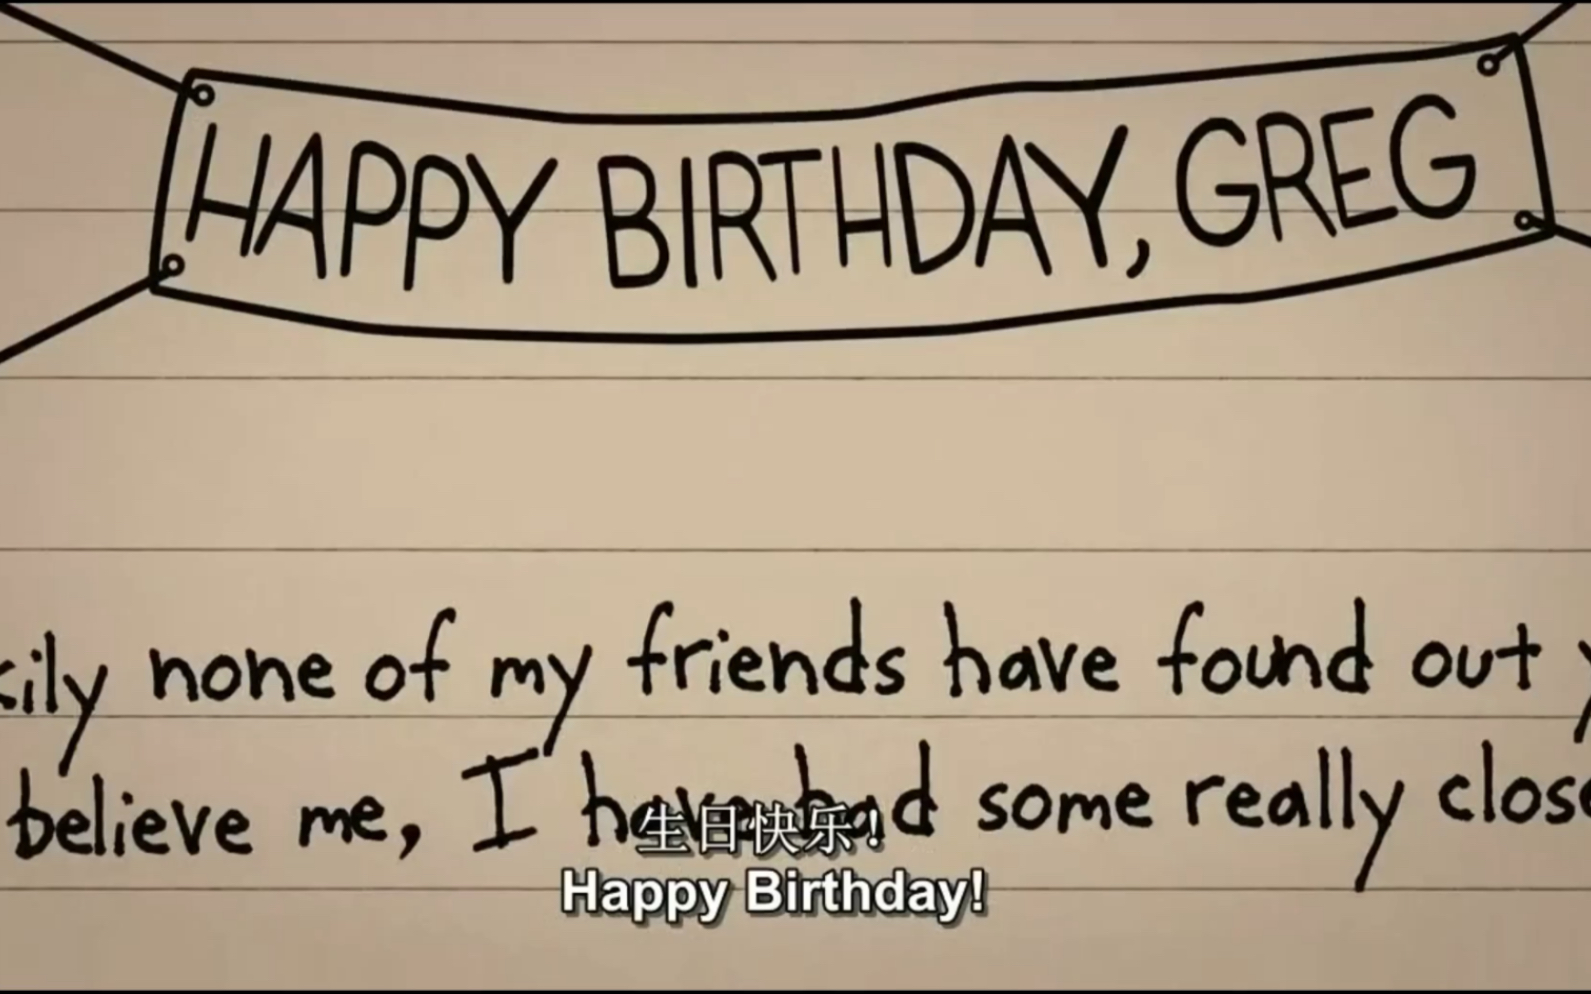 HAPPY BIRTHDAY, GREG
none of my friends have found out
believe me, I have had some really
生日快乐！
Happy Birthday!